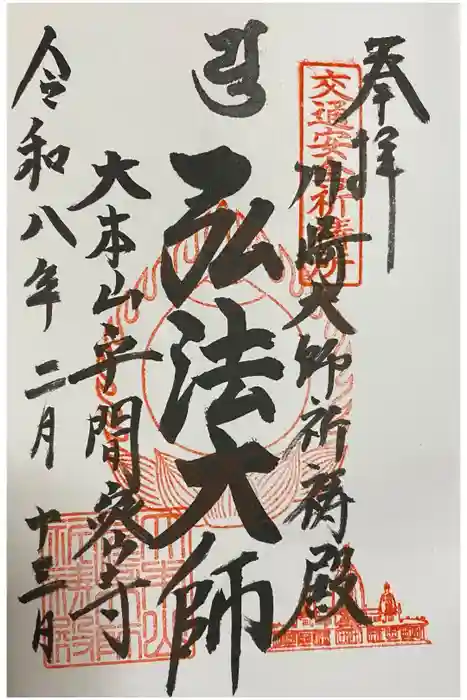 奉拝
交通安全祈祷所
川崎大師祈祷殿
弘法大師
大本山平間密寺
令和八年二月十三日